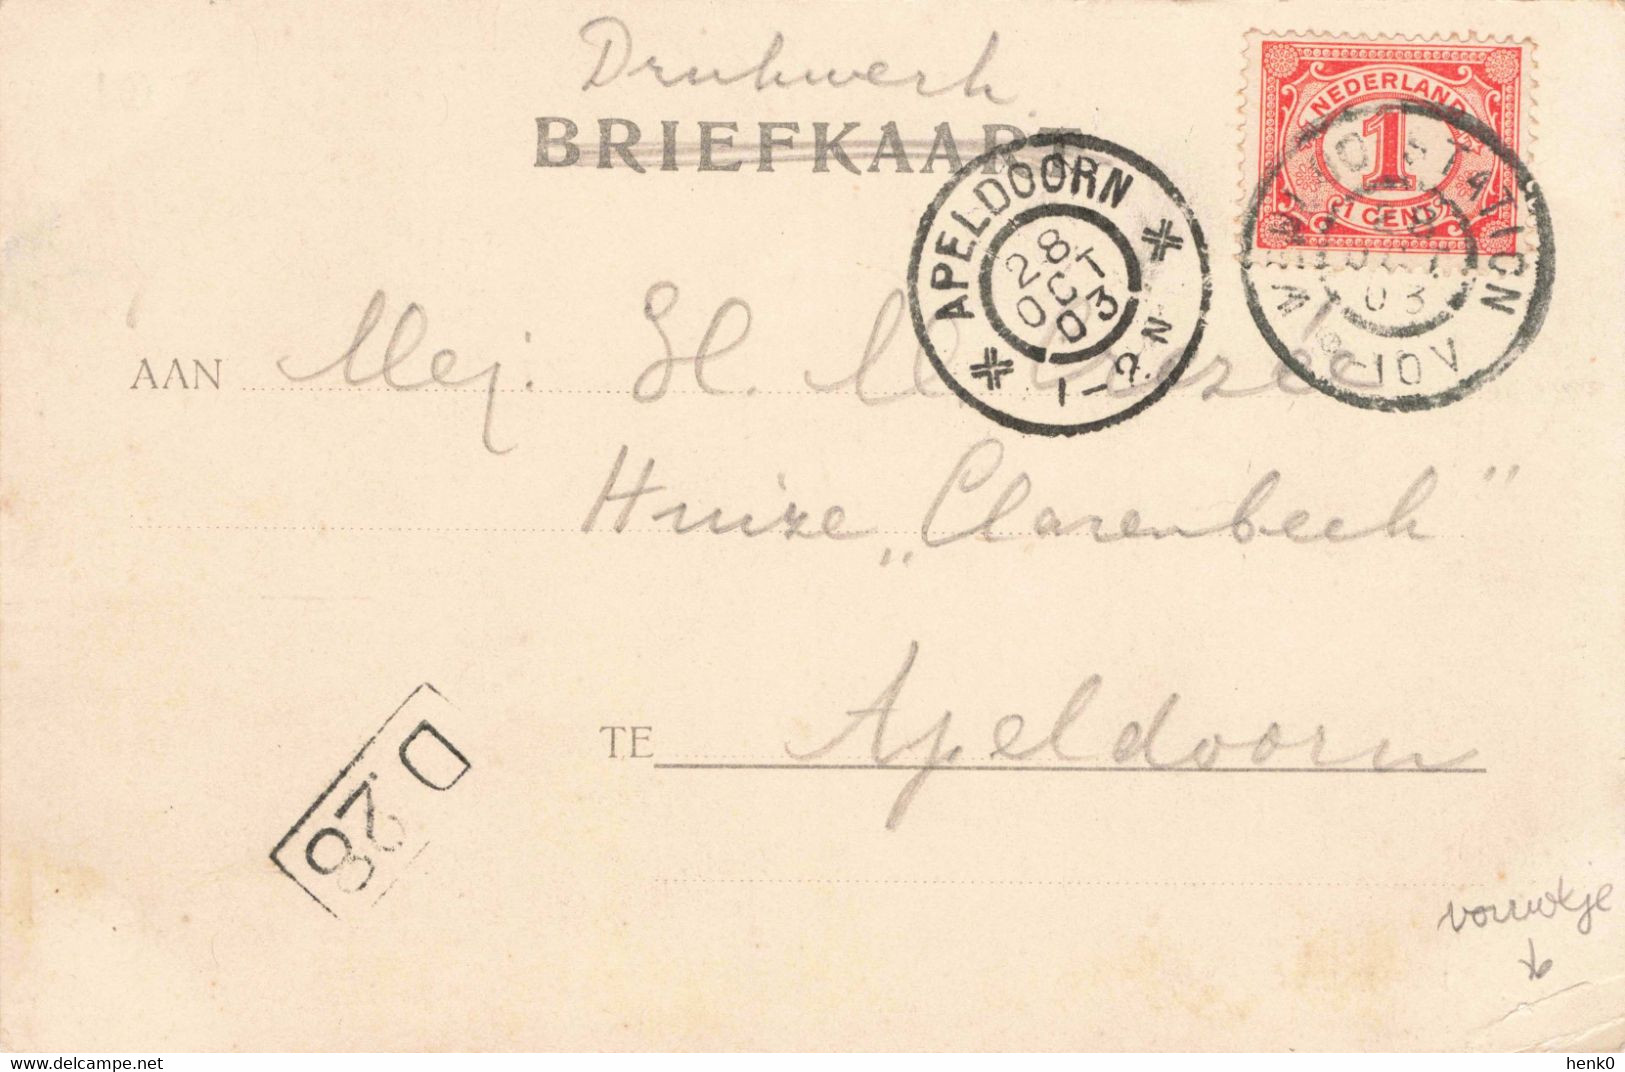 Drukwerk
BRIEFKAART
NEDERLAND
1
1 CENT
STATION
03
10V
APELDOORN
28 OCT 03
1-2 N
AAN Mej. H. M.
Huize „Clarenbeek"
TE Apeldoorn
D 28
vouwtje
henk0